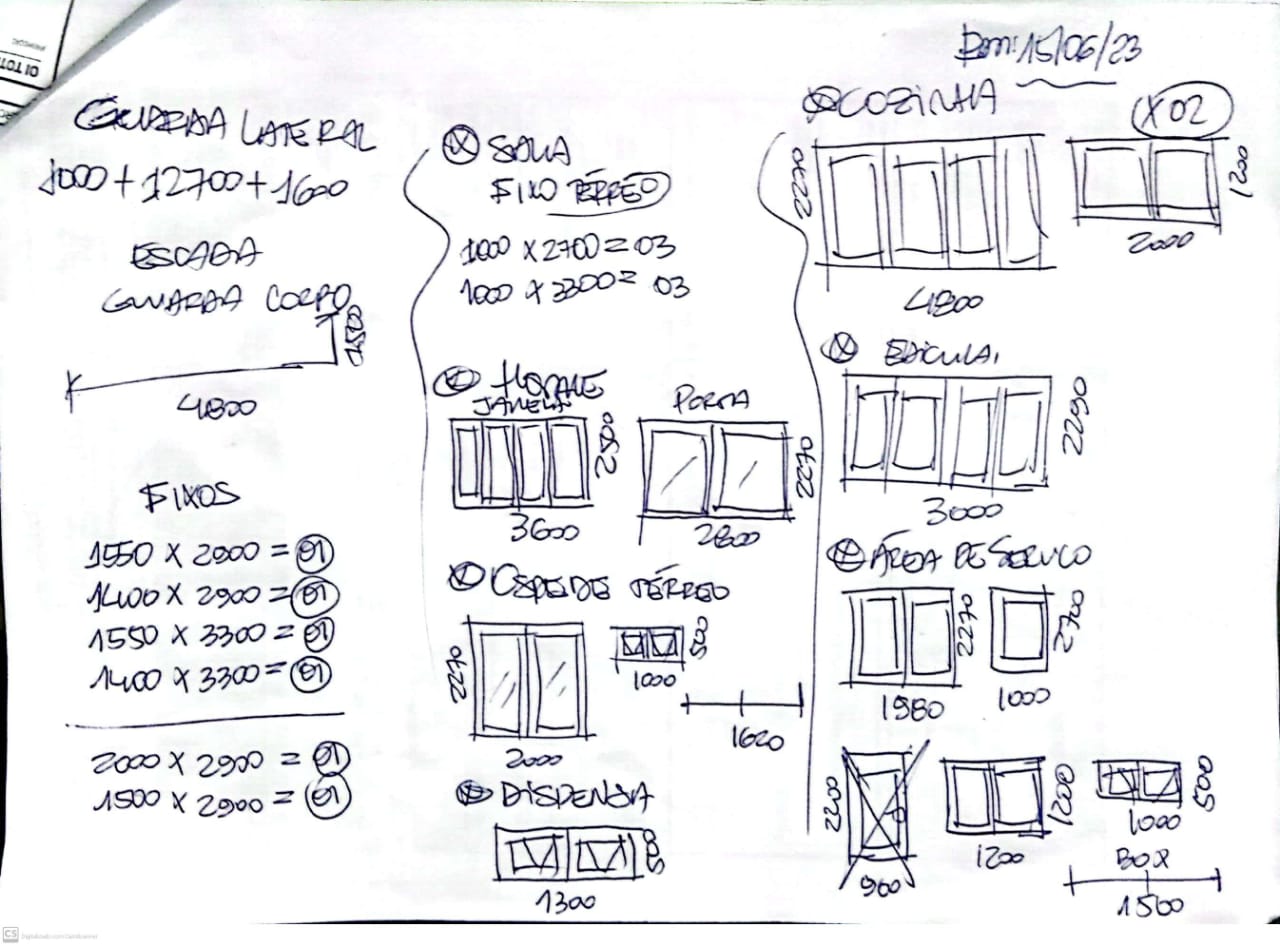 15/06/23
GUARDA LATERAL
1000+12700+1600
ESCADA
GUARDA CORPO
1500
4800
FIXOS
1550 X 2900 = 01
1400 X 2900 = 01
1550 X 3300 = 01
1400 X 3300 = 01
2000 X 2900 = 01
1500 X 2900 = 01
SALA
FIXO TÉRREO
1000 X 2700 = 03
1000 X 3300 = 03
JANELA
PORTA
2500
2270
3600
2800
TÉRREO
2270
500
1000
2000
1620
DISPENSA
500
1300
COZINHA
X02
2270
1200
2000
4800
EDICULA
2290
3000
ÁREA DE SERVIÇO
2270
2700
1980
1000
2200
1200
500
1000
960
1200
BOX
1500
CS